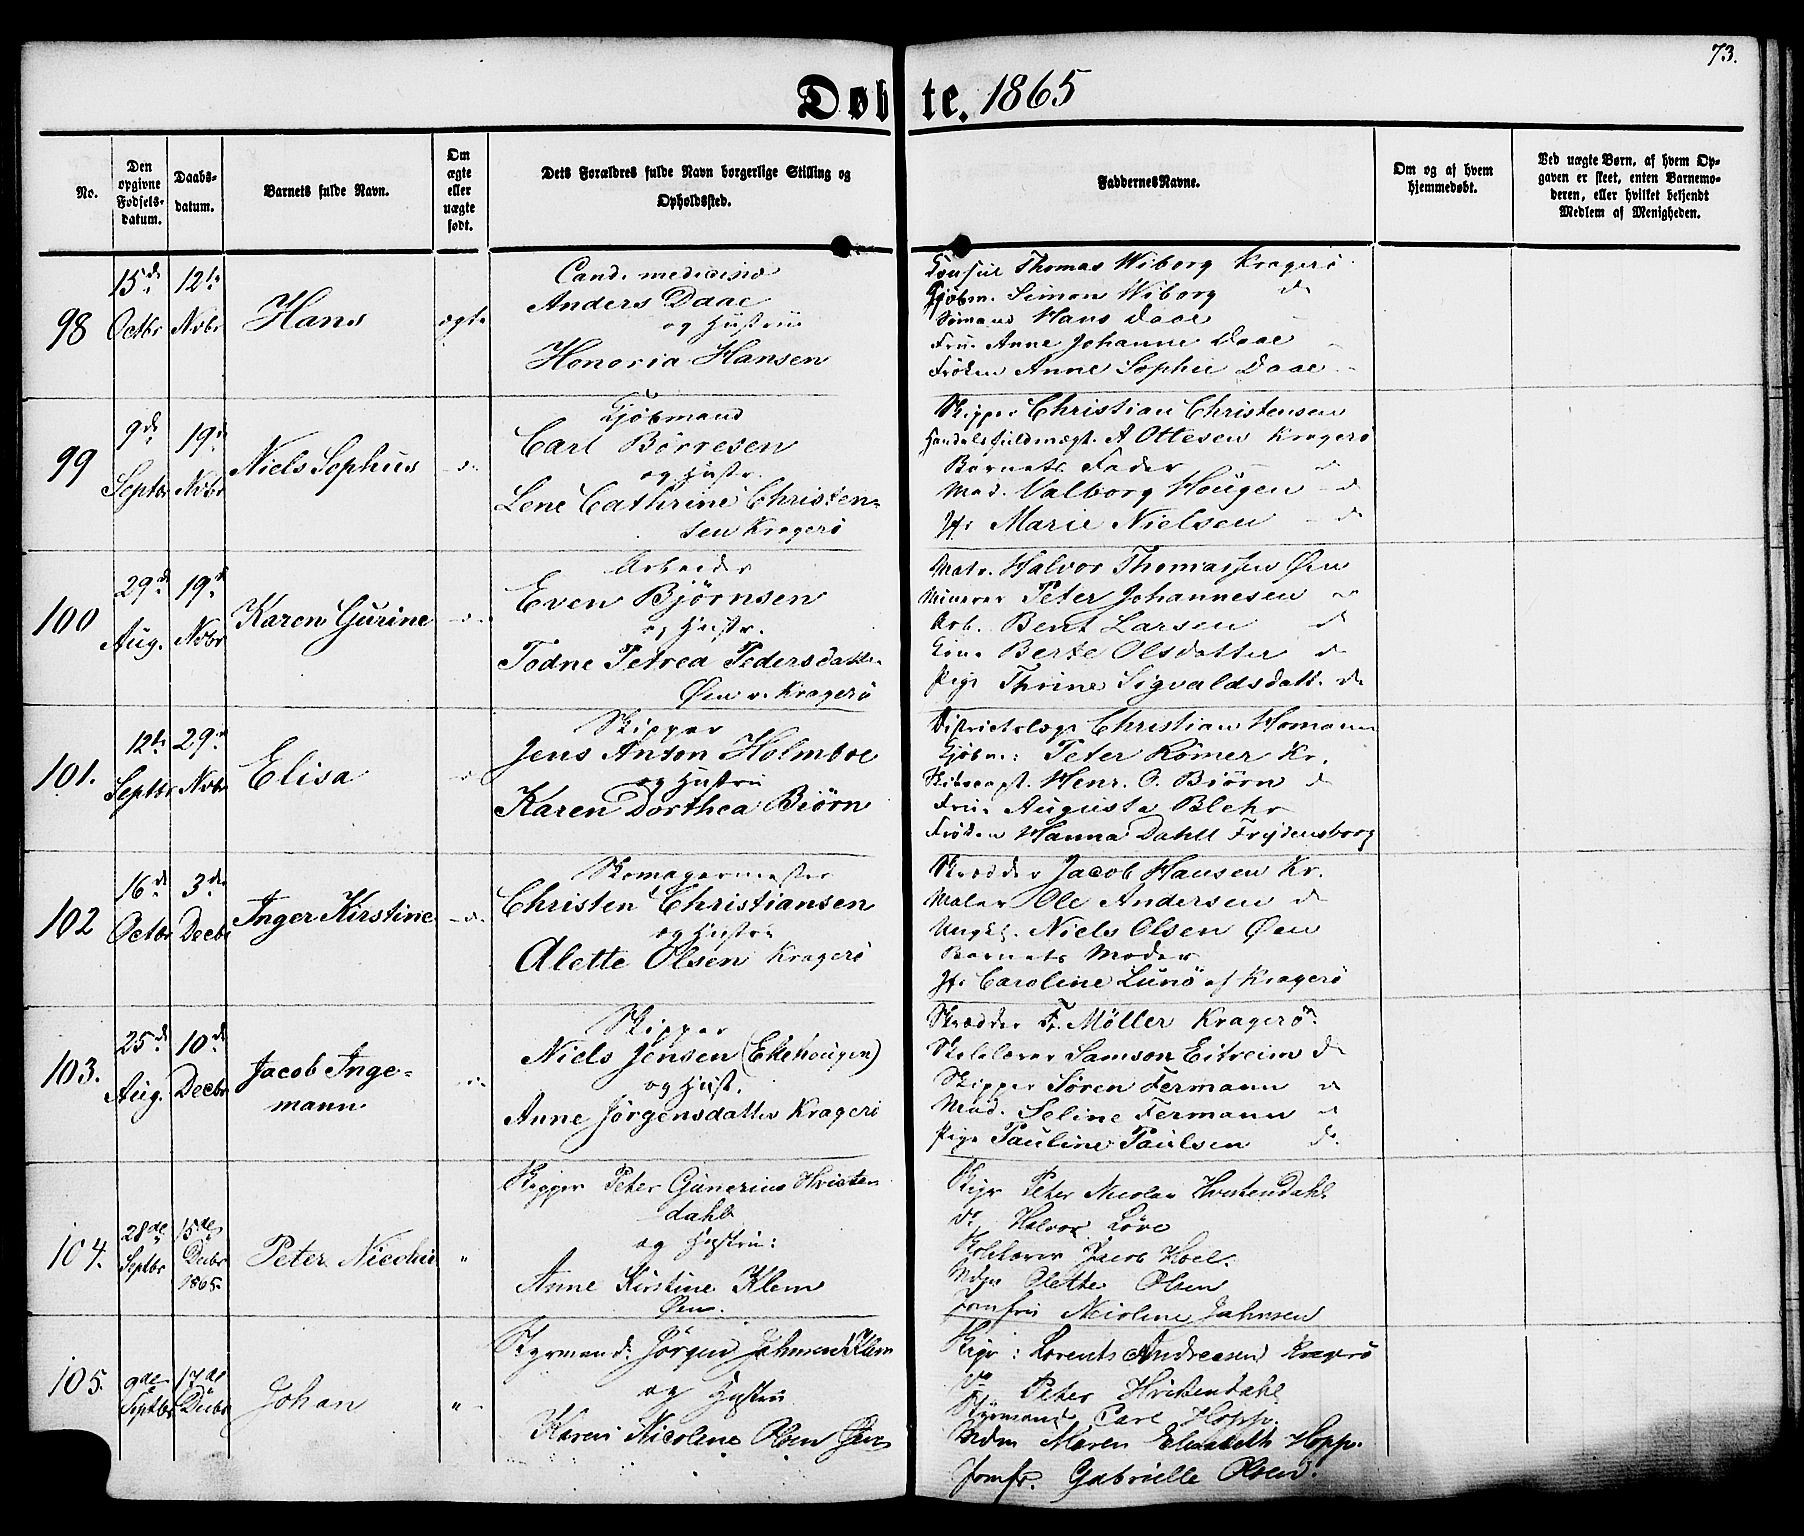 73.
Döbte. 1865
No.
Den opgivne Fodsels-datum.
Daabs-datum.
Barnets fulde Navn.
Om ægte eller uægte født.
Dets Forældres fulde Navn borgerlige Stilling og Opholdssted.
Faddernes Navne.
Om og af hvem hjemmedøbt.
Ved uægte Børn, af hvem Opgaven er skeet, enten Barnemoderen, eller hvilket bekjendt Medlem af Menigheden.
98
15de Octbr
12te Novbr
Hans
ægte
Cand. medicinæ
Anders Daae
og Hustru
Honoria Hansen
Consul Thomas Wiborg Kragerö
Kjøbm. Simon Wiborg do
Sømand Hans Daae
Fru Anne Johanne Daae
Frøken Anne Sophie Daae
99
9de Septbr
19de Novbr
Niels Sophus
do
Kjøbmand
Carl Börresen
og Hustr.
Lene Cathrine Christen-
sen Kragerö
Skipper Christian Christensen
Handelsfuldmægt. A Ottesen Kragerö
Barnets Fader
Mad. Valborg Hougen do
Jfr Marie Nielsen do
100
29de Aug.
19de Novbr
Karen Gurine
do
Arbeider
Even Bjørnsen
og Hustr.
Todne Petrea Pedersdatter
Øen v. Kragerö
Matr. Halvor Thomassen Øen
Minerer Peter Johannesen do
Arb. Bent Larsen do
Kone Berte Olsdatter do
Pige Thrine Sigvaldsdatt. do
101.
12te Septbr
29de Novbr
Elisa
do
Skipper
Jens Anton Holmboe
og Hustru
Karen Dorthea Biörn
Districtslæge Christian Homann
Kjøbm: Peter Römer Kr.
Skibscapt. Henr. O. Biörn do
Frue Augusta Blehr
Frøken Hanna Dahll Frydensborg
102
16de Octbr
3de Decbr
Inger Kirstine
do
Skomagermester
Christen Christiansen
og Hustru
Alette Olsen Kragerö
Skrædder Jacob Hansen Kr.
Maler Ole Andersen do
Ungk. Niels Olsen Øen
Barnets Moder
Jfr Caroline Lunö af Kragerö
103.
25de Aug.
10de Decbr
Jacob Inge-
mann
do
Skipper
Niels Jensen (Ekehougen)
og Hust.
Anne Jörgensdatter Kragerö
Skrædder F. Möller Kragerö
Skolelærer Samson Eitreim do
Skipper Søren Fermann do
Mad. Seline Fermann do
Pige Pauline Paulsen do
104.
28de Septbr
15de Decbr 1865.
Peter Nicolai
"
Skipper Peter Gunerius Hvisten
dahl
og Hustru:
Anne Kirstine Klem
Øen.
Skipr Peter Nicolai Hvistendahl
do Halvor Löve
Skolelærer Jacob Hoel.
Mdm Olette Olsen
Jomfru Nicoline Jahnsen
105.
9de Septbr
17de Decbr
Johan
"
Styrmand: Jörgen Johnsen Klem
og Hustru
Karen Nicoline Olsen Øen
Skipr: Lorents Andreasen Kragerö
do Peter Hvistendahl
Styrmand Carl Hopp.
Mdm Maren Elisabeth Hopp.
Jomfr. Gabrielle Olsen.